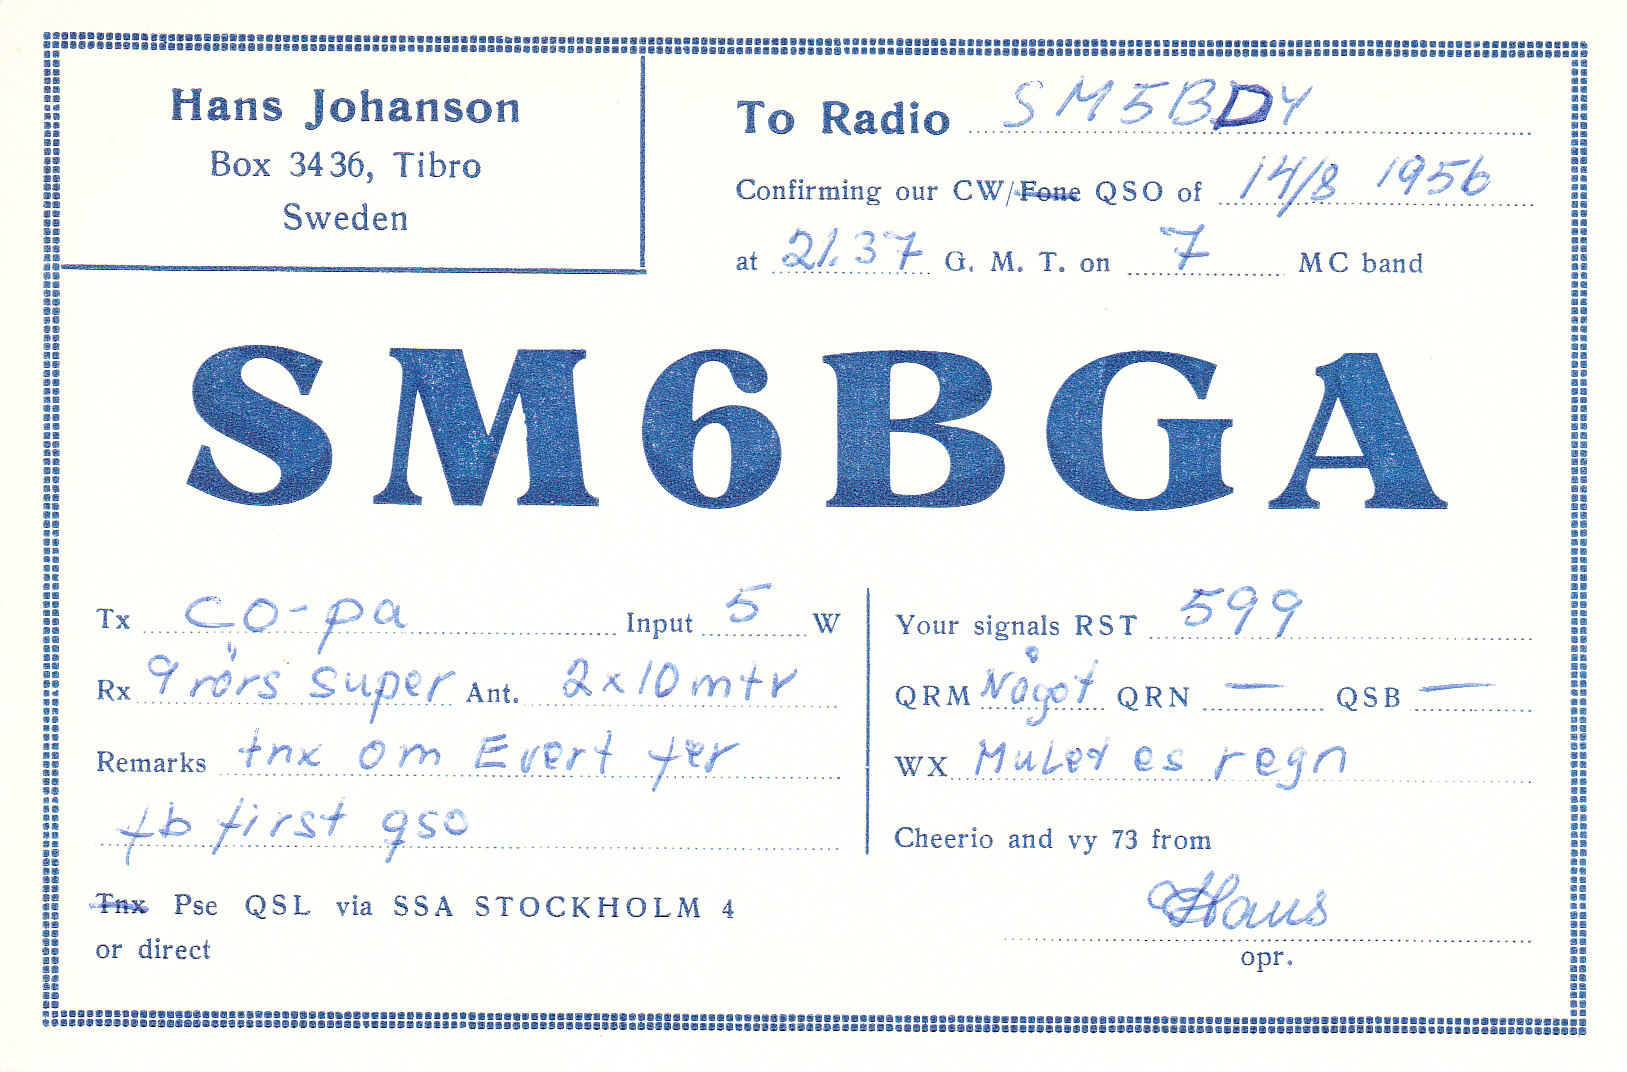 Hans Johanson
Box 3436, Tibro
Sweden
To Radio SM5BDY
Confirming our CW/Fone QSO of 14/8 1956
at 21.37 G. M. T. on 7 MC band
SM6BGA
Tx CO-pa Input 5 W
Rx 9 rörs super Ant. 2x10 mtr
Remarks tnx om Evert fer
fb first qso
Tnx Pse QSL via SSA STOCKHOLM 4
or direct
Your signals RST 599
QRM Något QRN — QSB —
WX Mulet es regn
Cheerio and vy 73 from
Hans
opr.